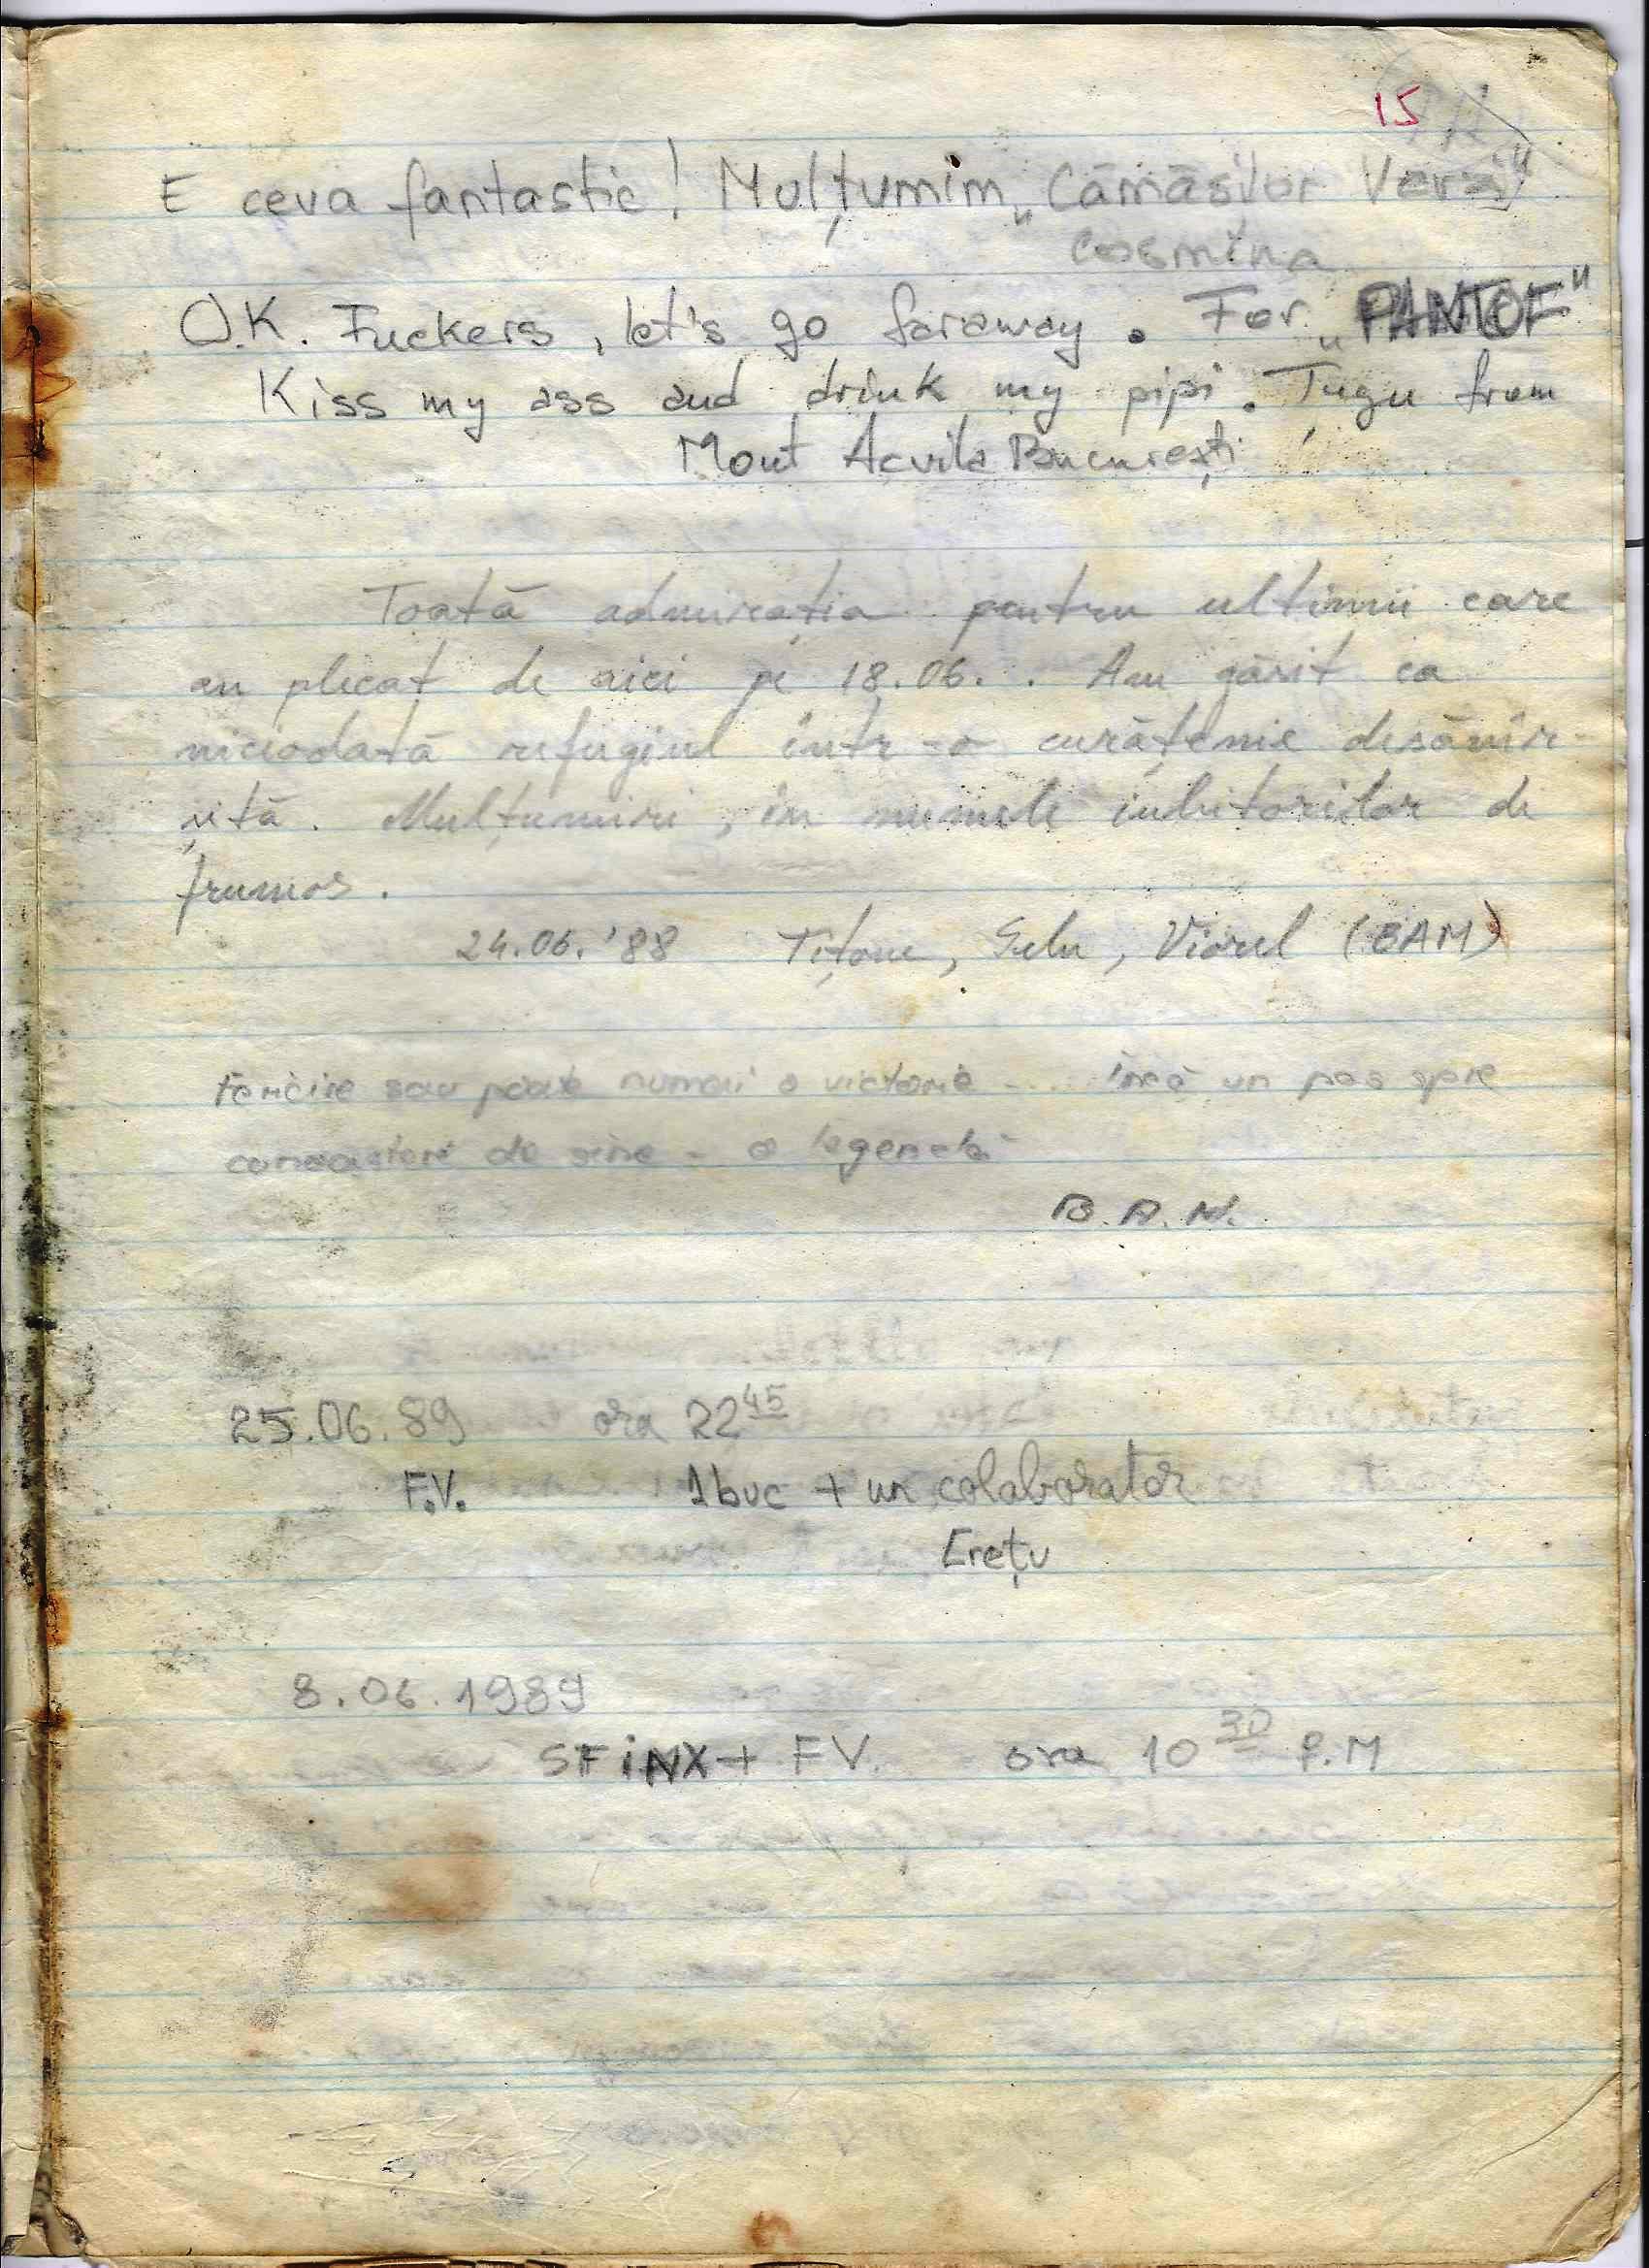 15
E ceva fantastic! Mulțumim „Cămăsilor Verzi"
Cosmina
O.K. Fuckers, let's go faraway. For „PANTOF"
Kiss my ass and drink my pipi. Țugu from
Mont Acvila București
Toată admirația pentru ultimii care
au plecat de aici pe 18.06.. Am găsit ca
niciodată refugiul într-o curățenie desăvîr-
șită. Mulțumiri, în numele iubitorilor de
frumos.
24.06.'88 Țițone, Gelu, Viorel (BAM)
Fericire sau poate numai o victorie .... încă un pas spre
cunoaștere de sine - o legendă
B.A.N.
25.06.89 ora 22 45
F.V. 1buc + un colaborator
Crețu
8.06.1989
SFiNX + F V. ora 10 30 P.M